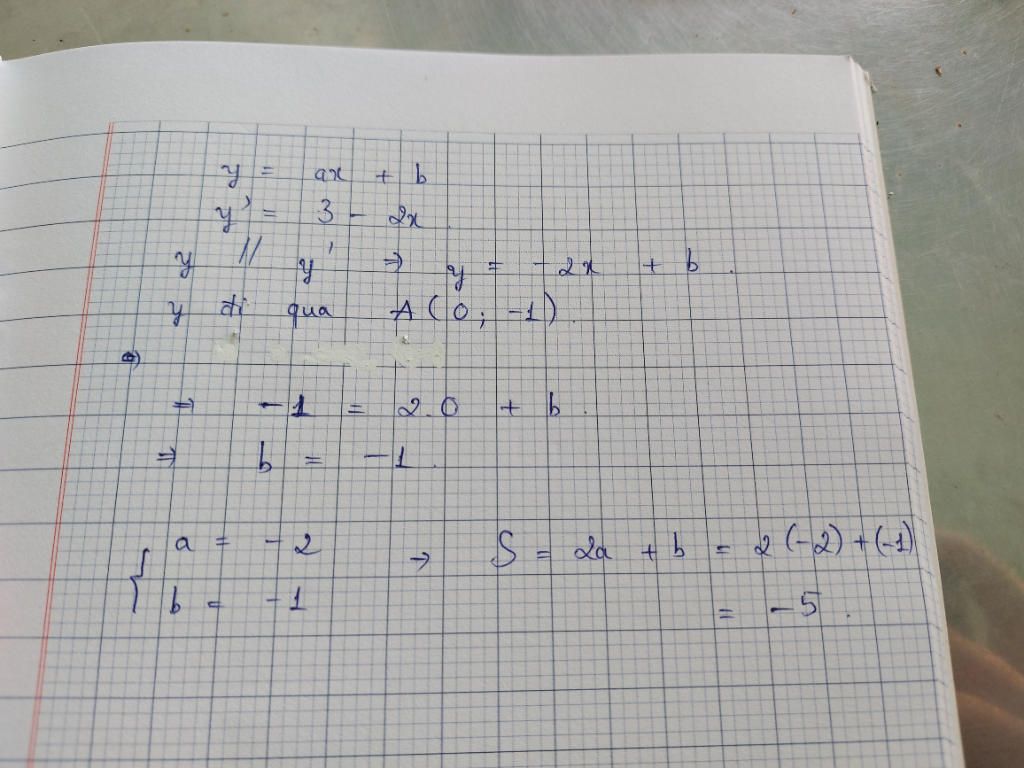 y = ax + b
y' = 3 - 2x.
y // y' ⇒ y = -2x + b.
y đi qua A(0; -1).
⇒ -1 = 2.0 + b.
⇒ b = -1.
{ a = -2 → S = 2a + b = 2(-2) + (-1)
b = -1 = -5.